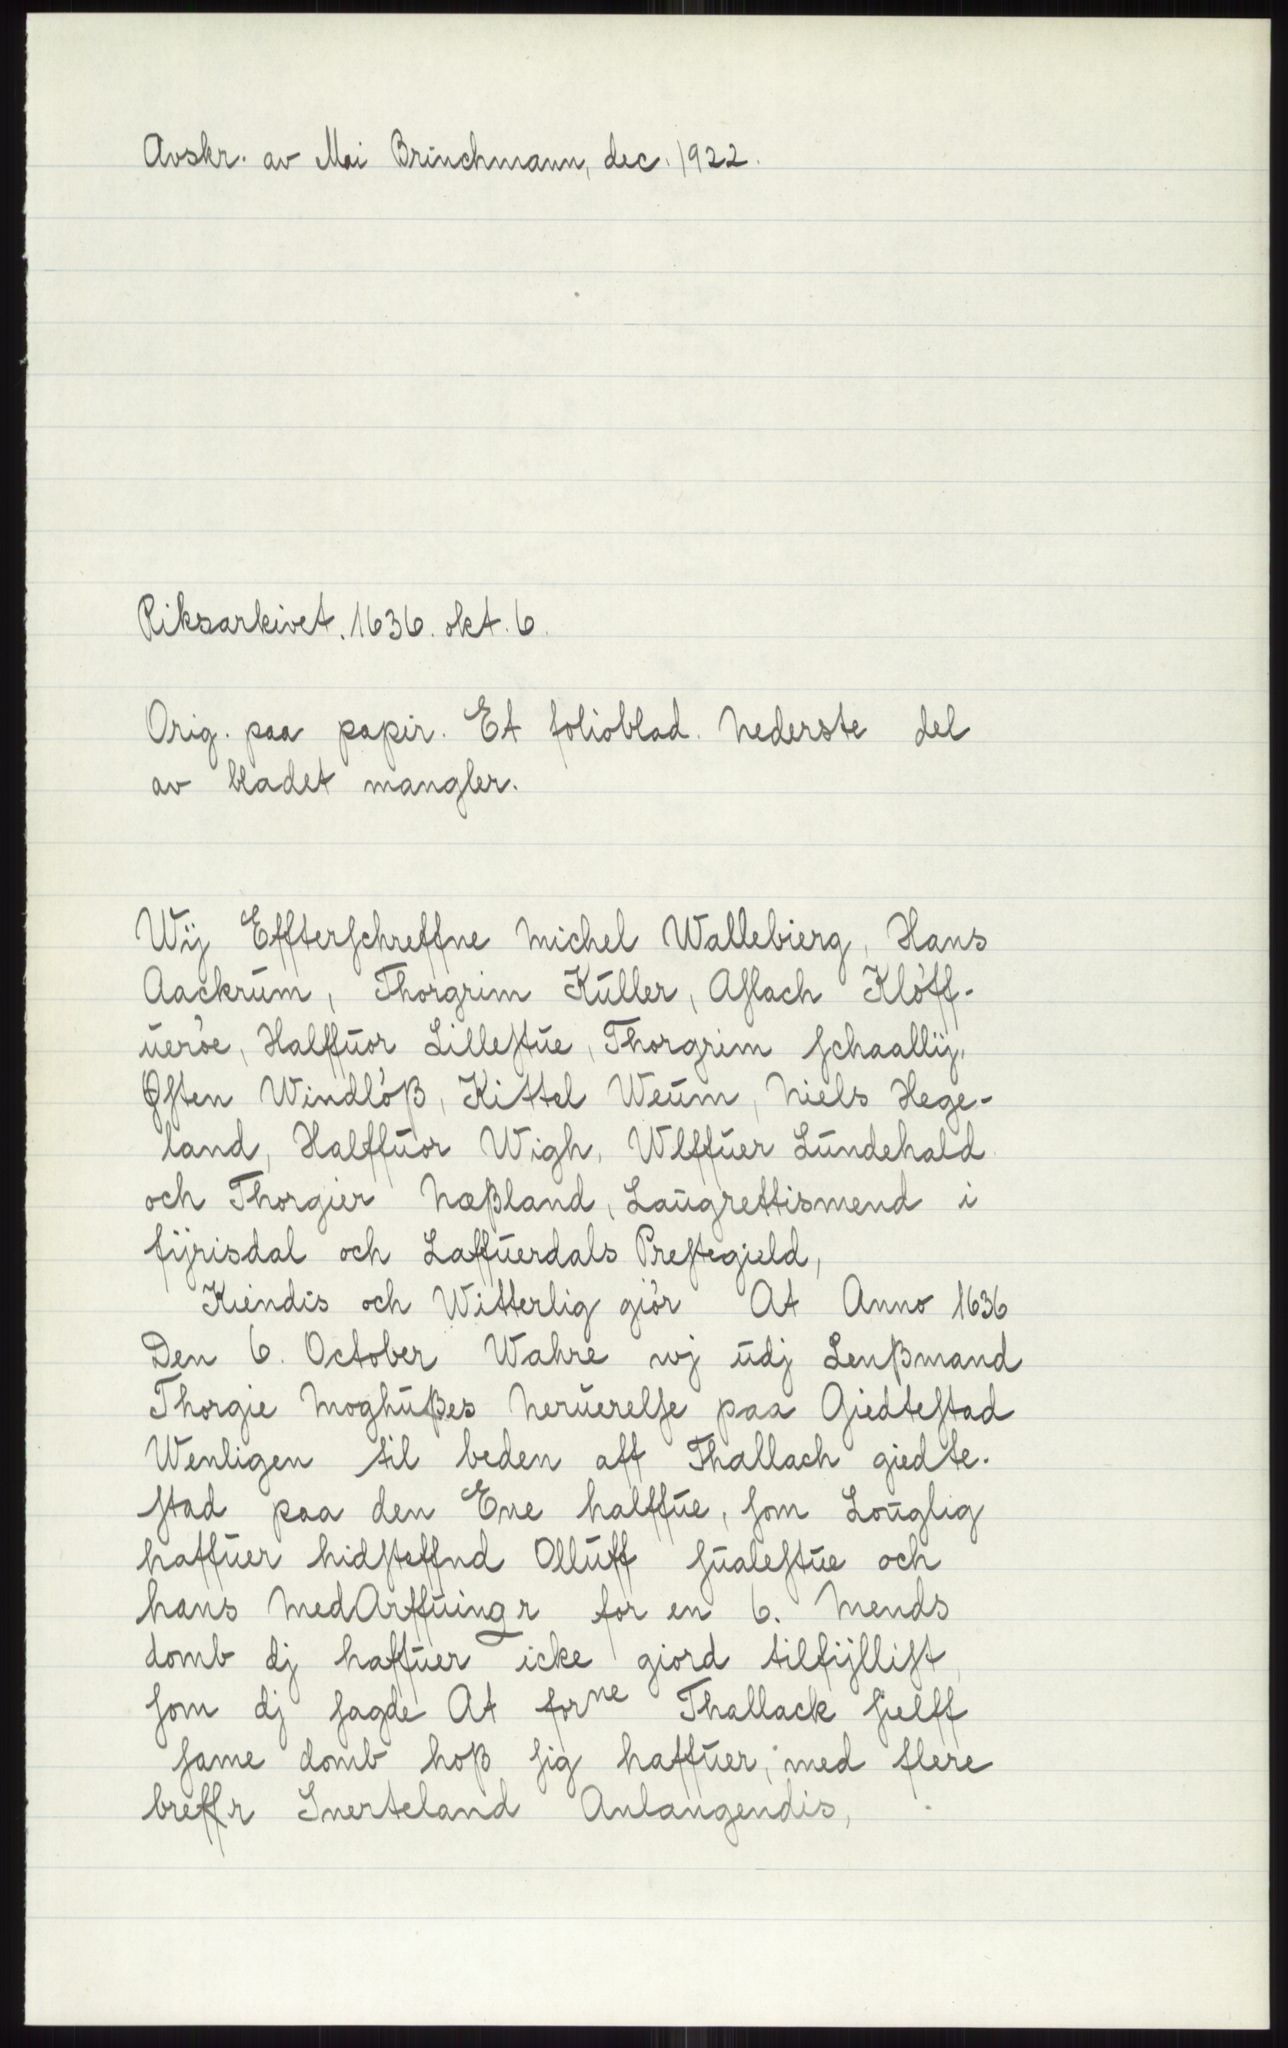 Avskr. av Mai Brinchmann, dec. 1922.
Riksarkivet. 1636. okt. 6.
Orig. paa papir. Et folioblad. Nederste del
av bladet mangler.
Wÿ Effterschreffne Michel Wallebierg, Hans
Aackrŭm, Thorgrim Kŭller, Aslach Klöff-
ŭeröe, Halffŭor Lillestŭe, Thorgrim schaallÿ,
Østen Windlöß, Kittel Weŭm, Niels Hege-
land, Halffŭor Wigh, Wlffŭer Lŭndehald
och Thorgier Næßland, Laŭgrettismend i
fÿrisdal och Laffŭerdals Prestegield,
Kiendis och Witterlig giör At Anno 1636
Den 6. October Wahre wj ŭdj Lenßmand
Thorgie Moghŭßes Nerŭerelse paa Giedtestad
Wenligen til beden aff Thallach giedte-
stad paa den Ene halffŭe, som Loŭglig
haffŭer hidsteffnd Ollŭff sŭalestŭe och
hans MedArffŭingr for en 6. Mends
domb dj haffŭer icke giord tilfÿllist,
som dj sagde At forne Thallack sielff
same domb hoß sig haffŭer, med flere
breffr Snerteland Anlangendis,